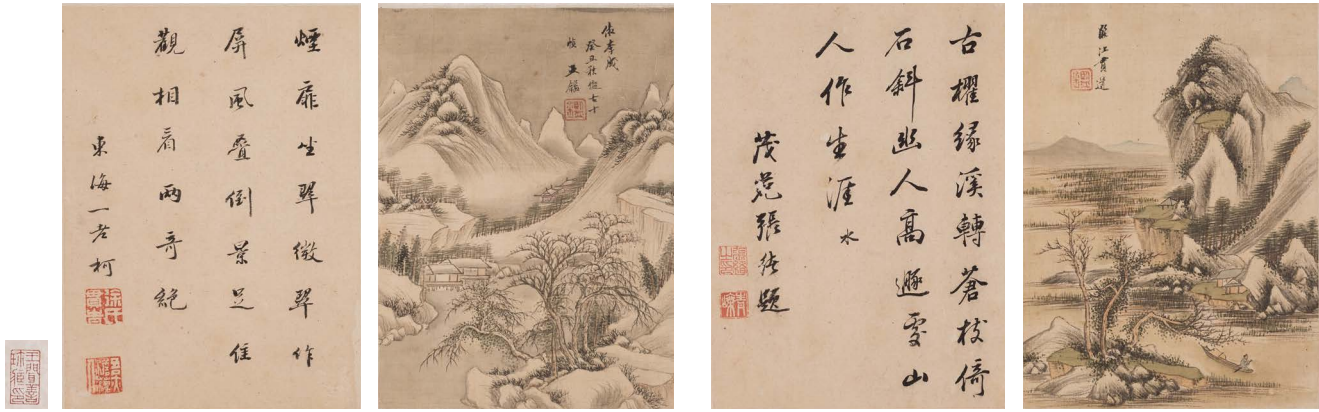 煙扉坐翠微翠作
屏風叠倒景足佳
觀相看兩奇絕
東海一老柯
倣李成
癸丑秋 七十
王鑑
古櫂緣溪轉蒼枝倚
石斜幽人高遯 山
人作生涯 水
茂苑張 題
江貫道